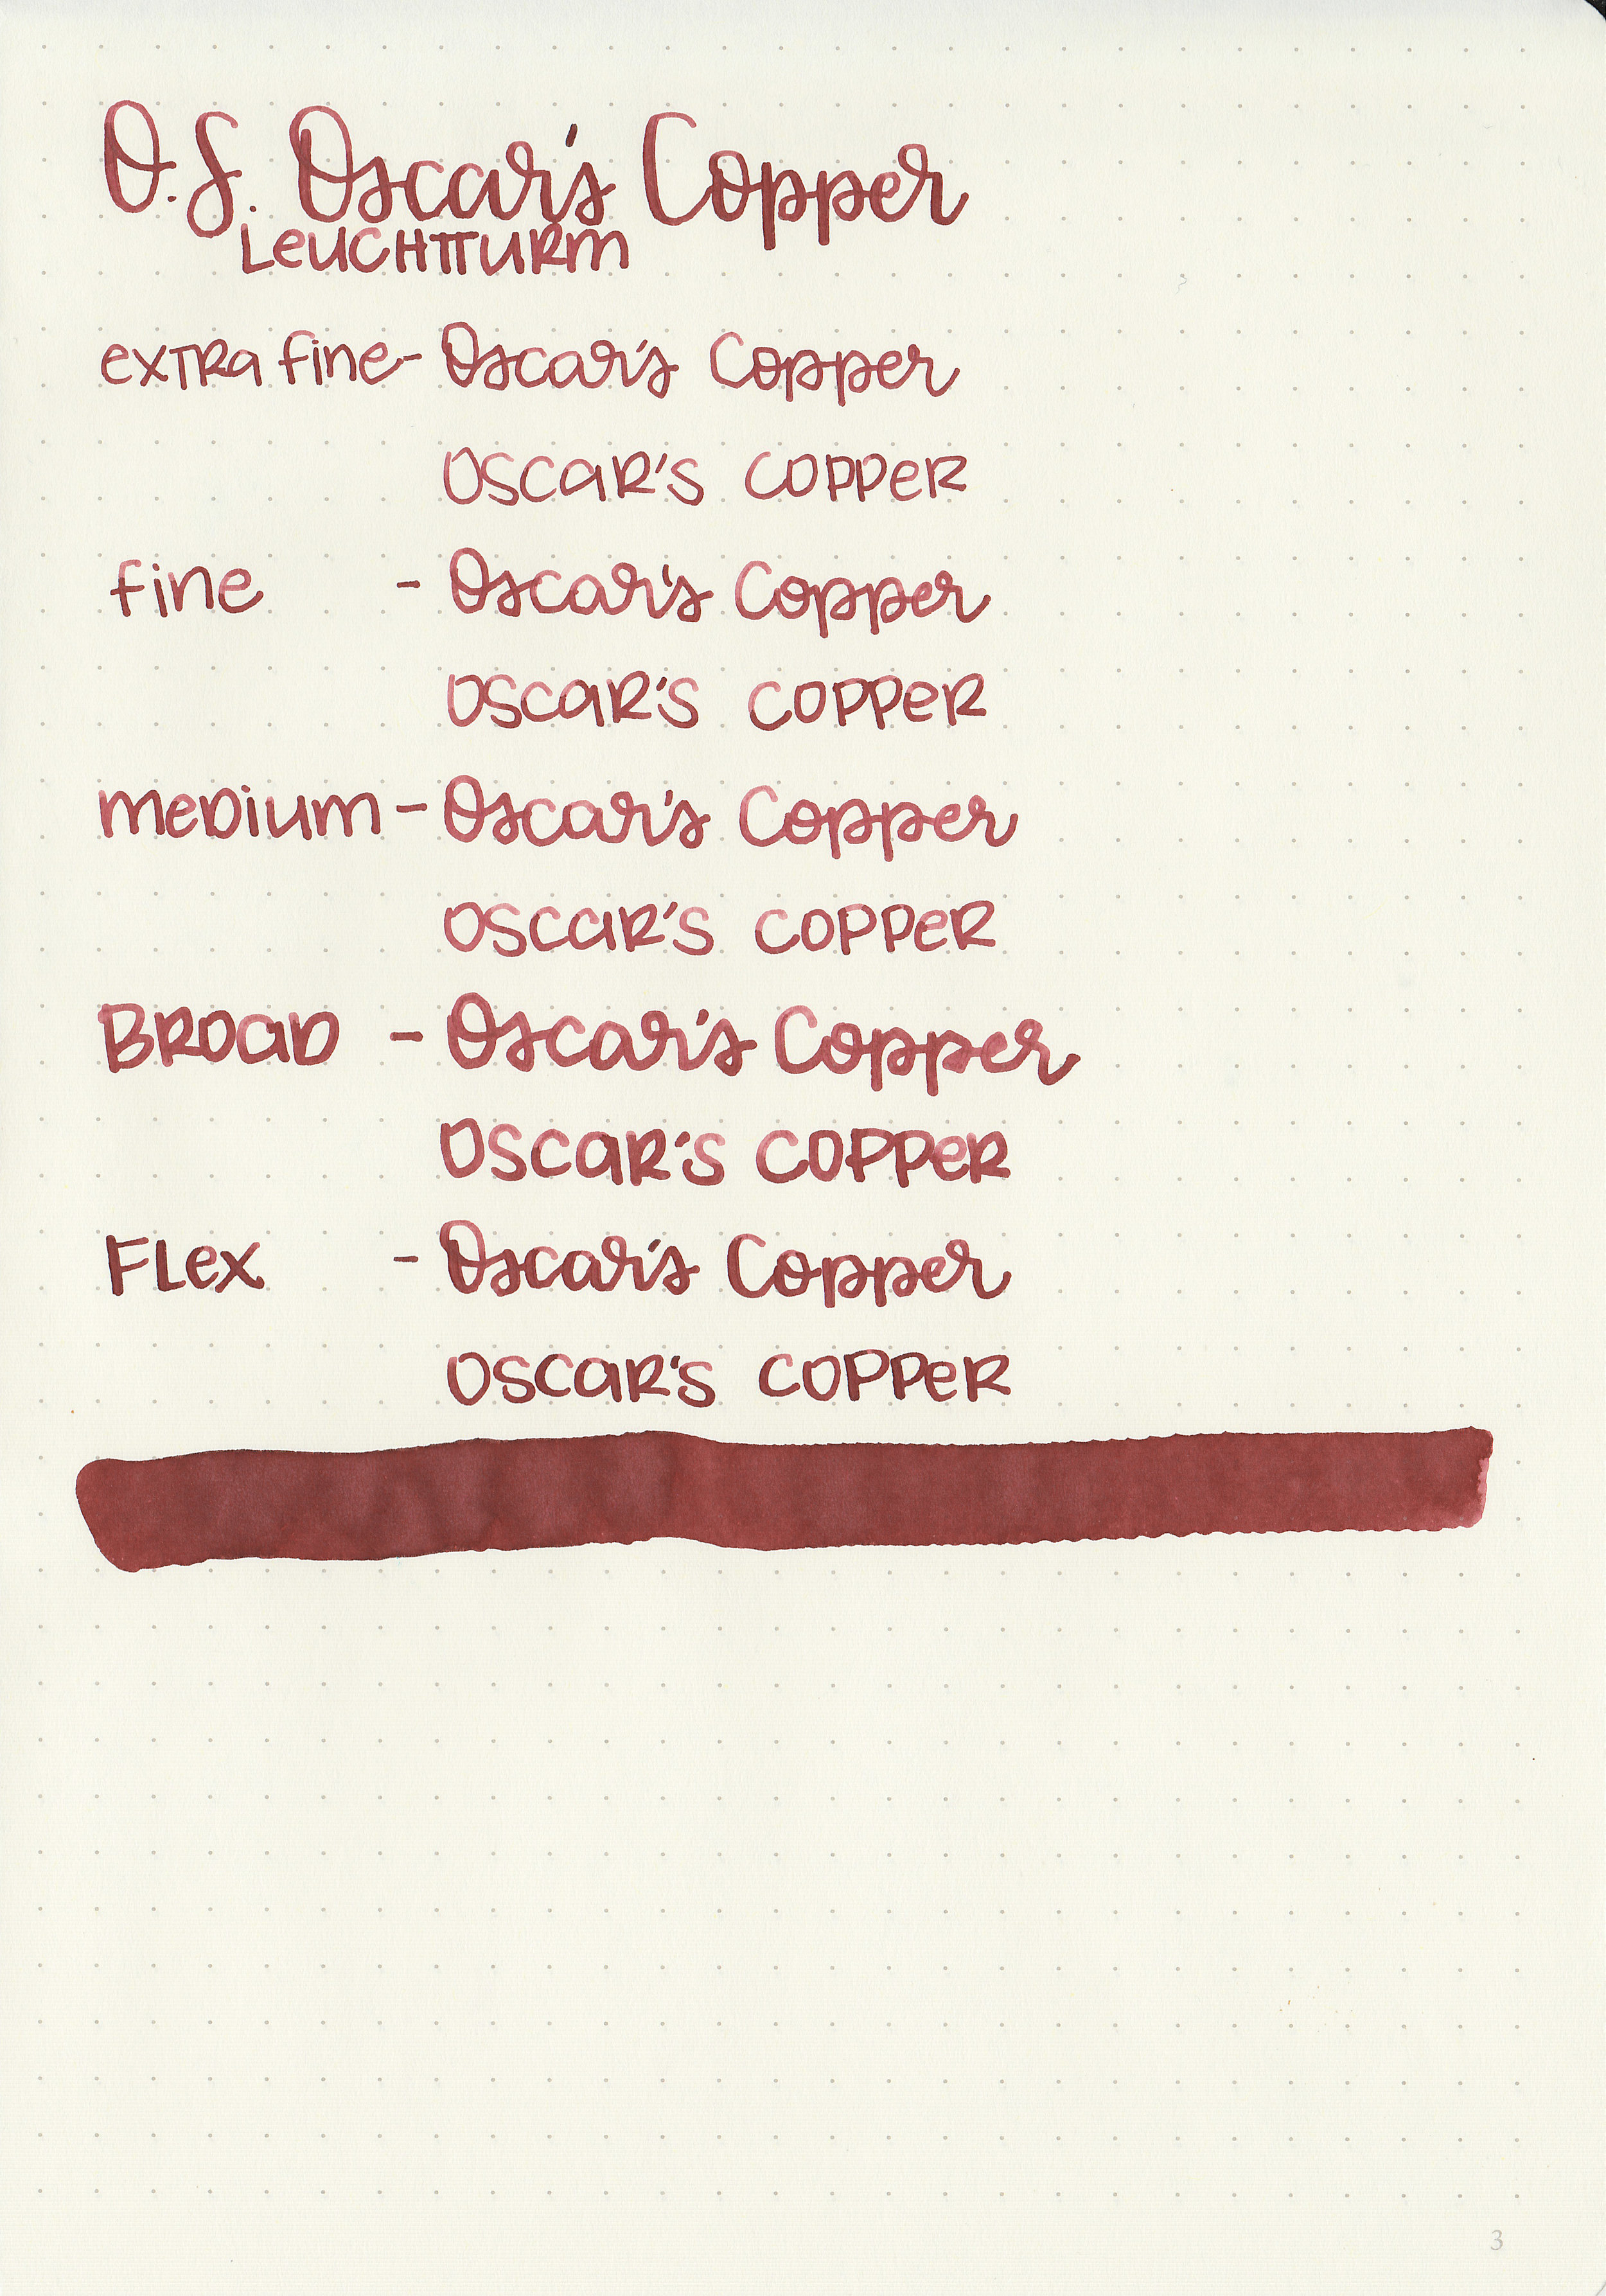 O.S. Oscar's Copper
LeUCHTTURm
exTRa fine - Oscar's Copper
OSCaR'S COPPeR
fine - Oscar's Copper
OSCaR'S COPPeR
meDium - Oscar's Copper
OSCaR'S COPPeR
BROaD - Oscar's Copper
OSCaR'S COPPeR
FLex - Oscar's Copper
OSCaR'S COPPeR
3